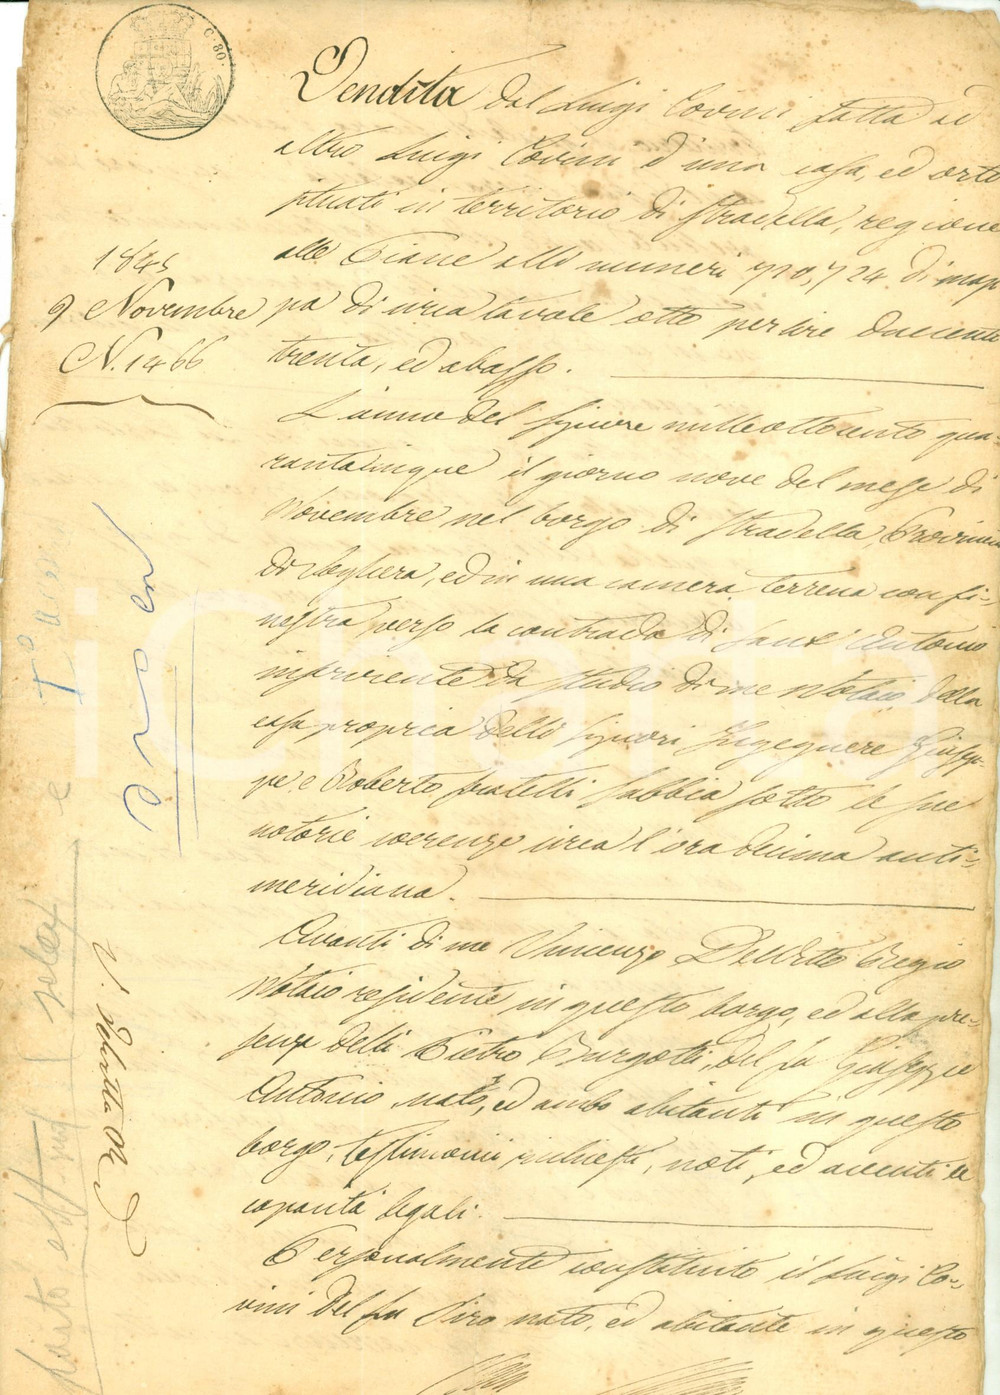 C. 80.
Vendita dal Luigi Covini fatta ad
altro Luigi Covini d'una casa, ed orto
situati in territorio di Stradella, regione
alle Piane alli numeri 720, 724 di map-
pa di circa tavole otto per lire duecento
trenta, ed abasso.
1845
9 Novembre
N. 1466
L'anno del Signore mille ottocento qua-
rantacinque il giorno nove del mese di
Novembre nel borgo di Stradella, Provincia
di Voghera, ed in una camera terrena con fi-
nestra verso la contrada di Sant'Antonio
inserviente da studio di me Notaio, della
casa propria delli Signori Ingegnere Giusep-
pe e Roberto fratelli Sabbia sotto le sue
notorie coerenze circa l'ora decima anti-
meridiana.
Avanti di me Vincenzo Regio
Notaio residente in questo borgo, ed alla pre-
senza delli Pietro Burgotti, del fu Giuseppe
Antonio nato, ed ambo abitanti in questo
borgo, testimonii richiesti, noti, ed aventi le
capacità legali.
Personalmente constituito il Luigi Co-
vini del fu Siro nato, ed abitante in questo
iCharta